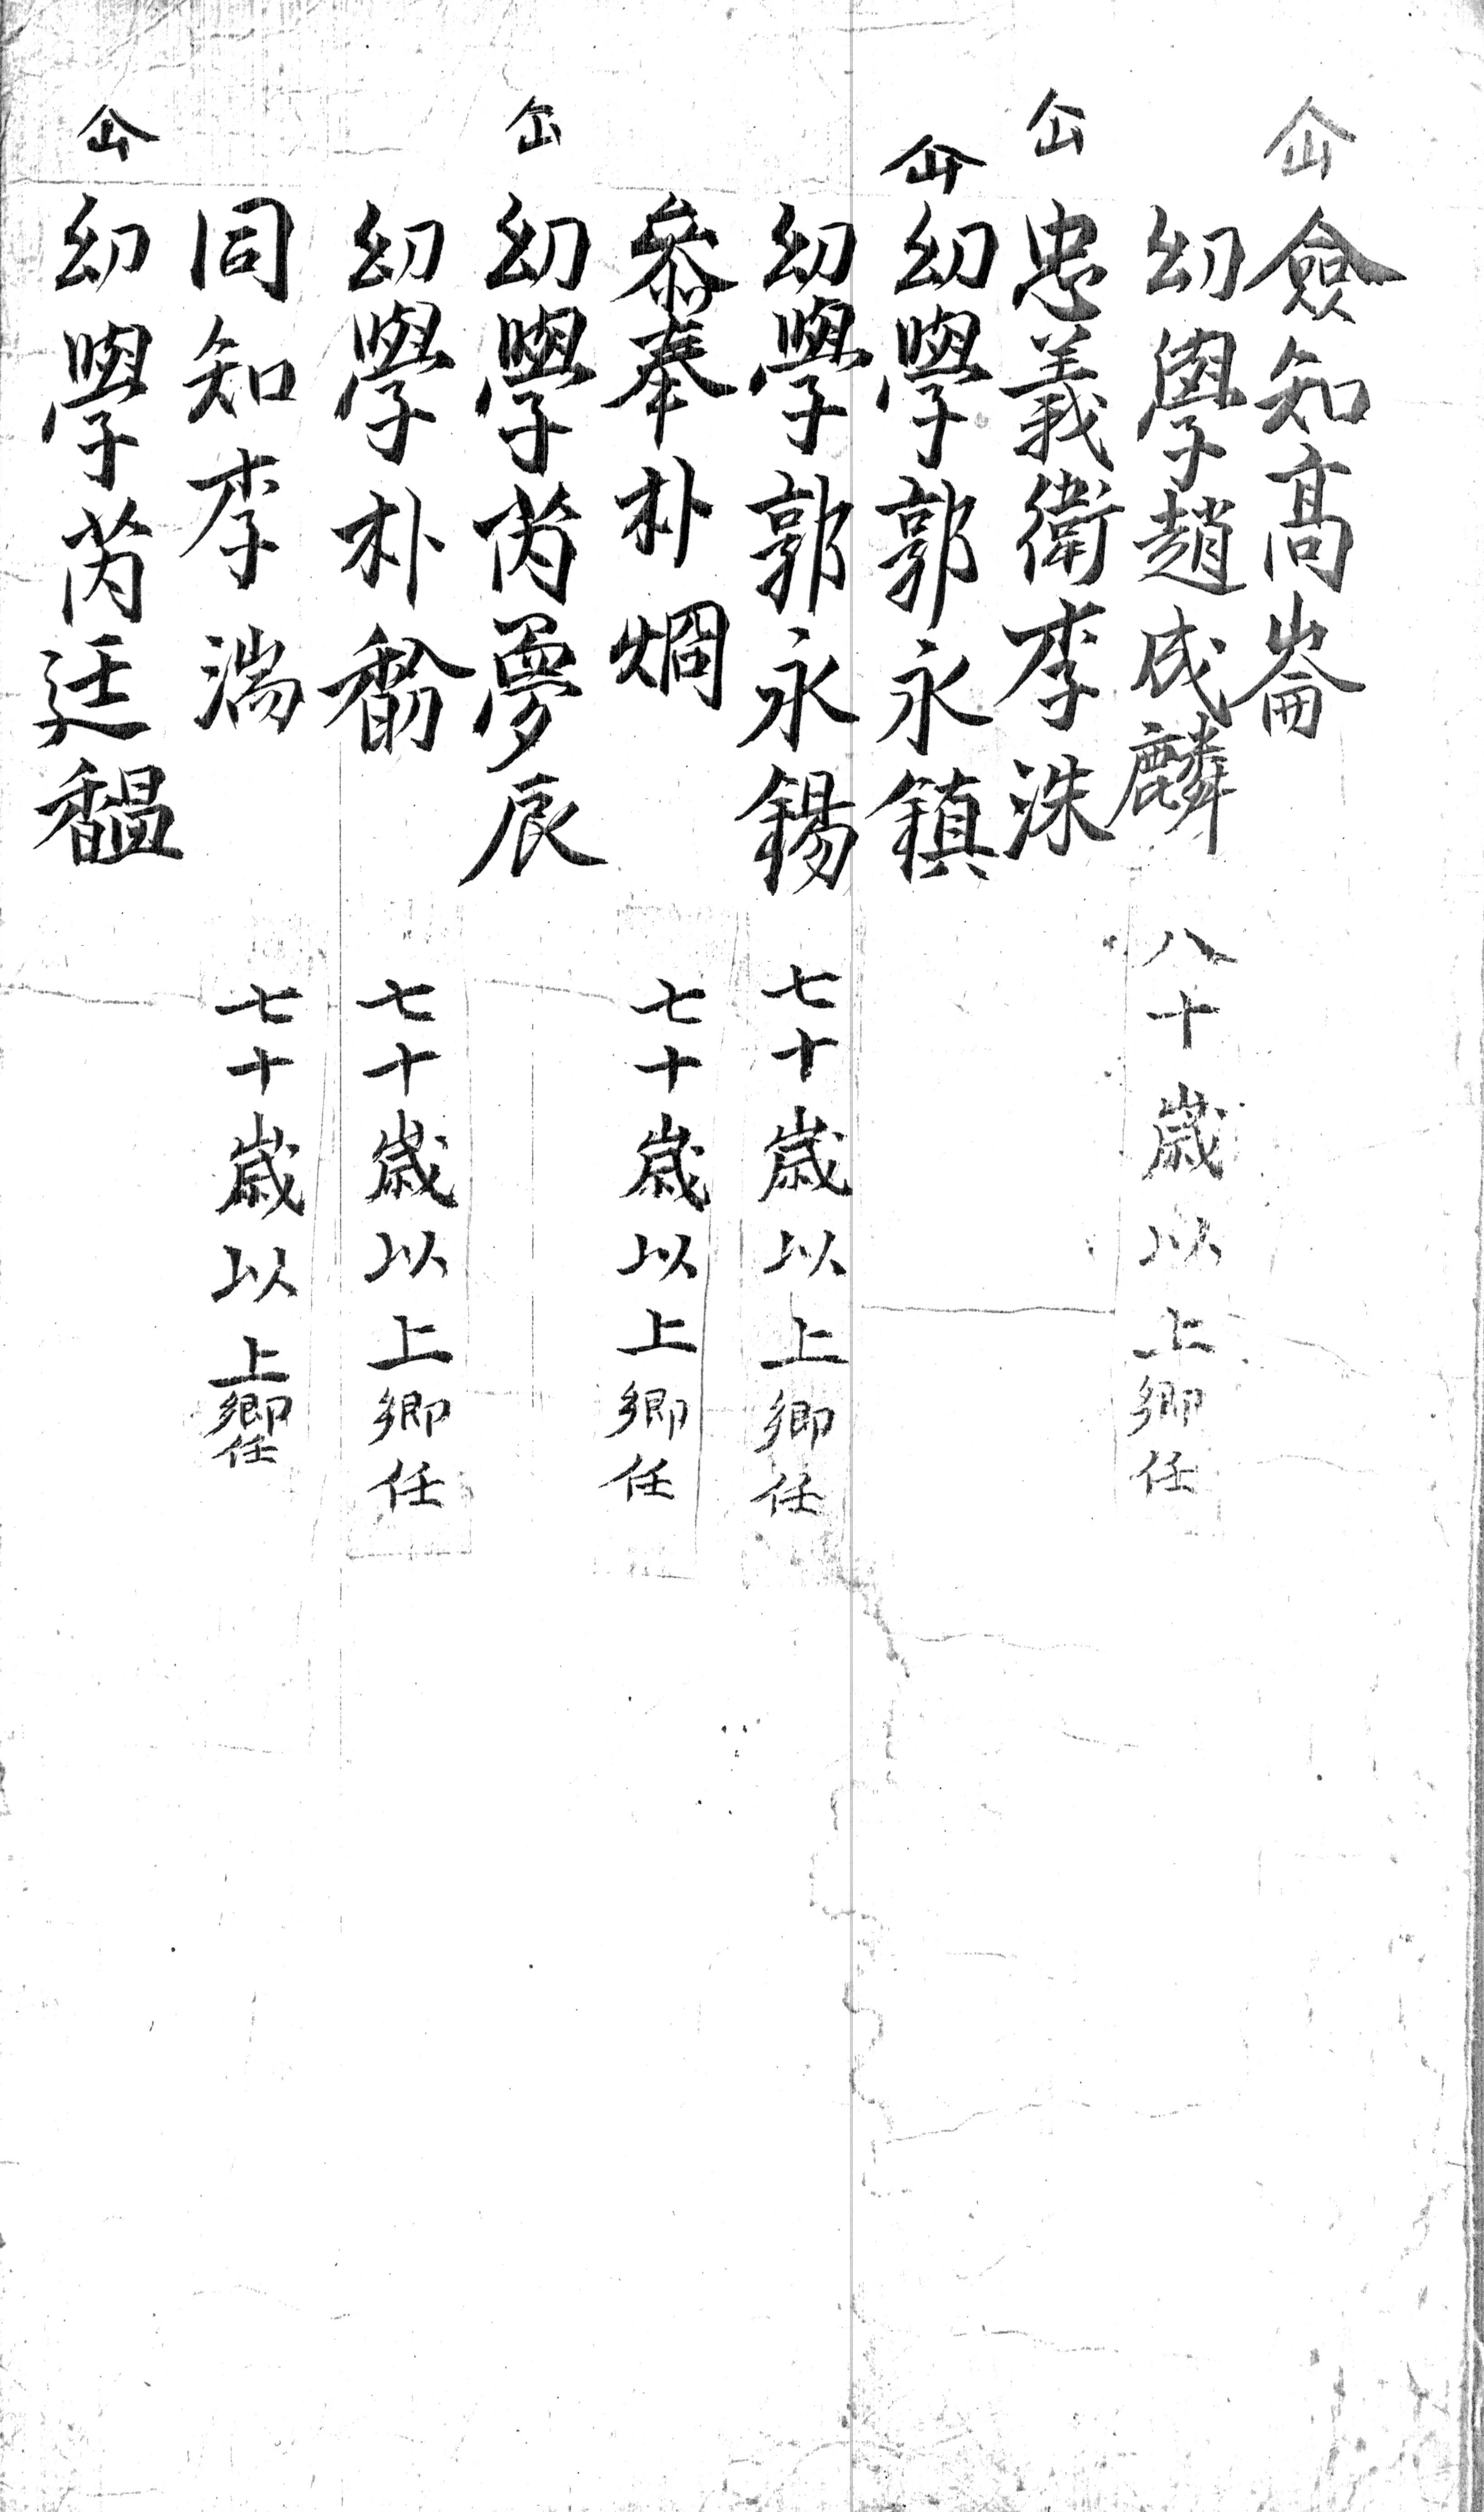 仚 僉知高崙
幼學趙成麟 八十歲以上鄉任
仚 忠義衛李洙
仚 幼學郭永鎮
幼學郭永錫 七十歲以上鄉任
叅奉朴燗 七十歲以上鄉任
仚 幼學芮夢辰
幼學朴馚 七十歲以上鄉任
同知李湍 七十歲以上鄉任
仚 幼學芮廷馧